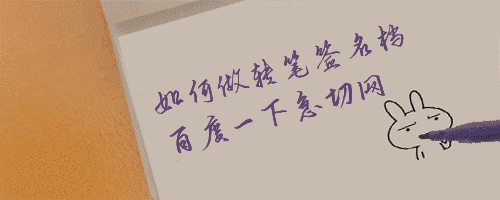 如何做转笔签名档
百度一下急切网